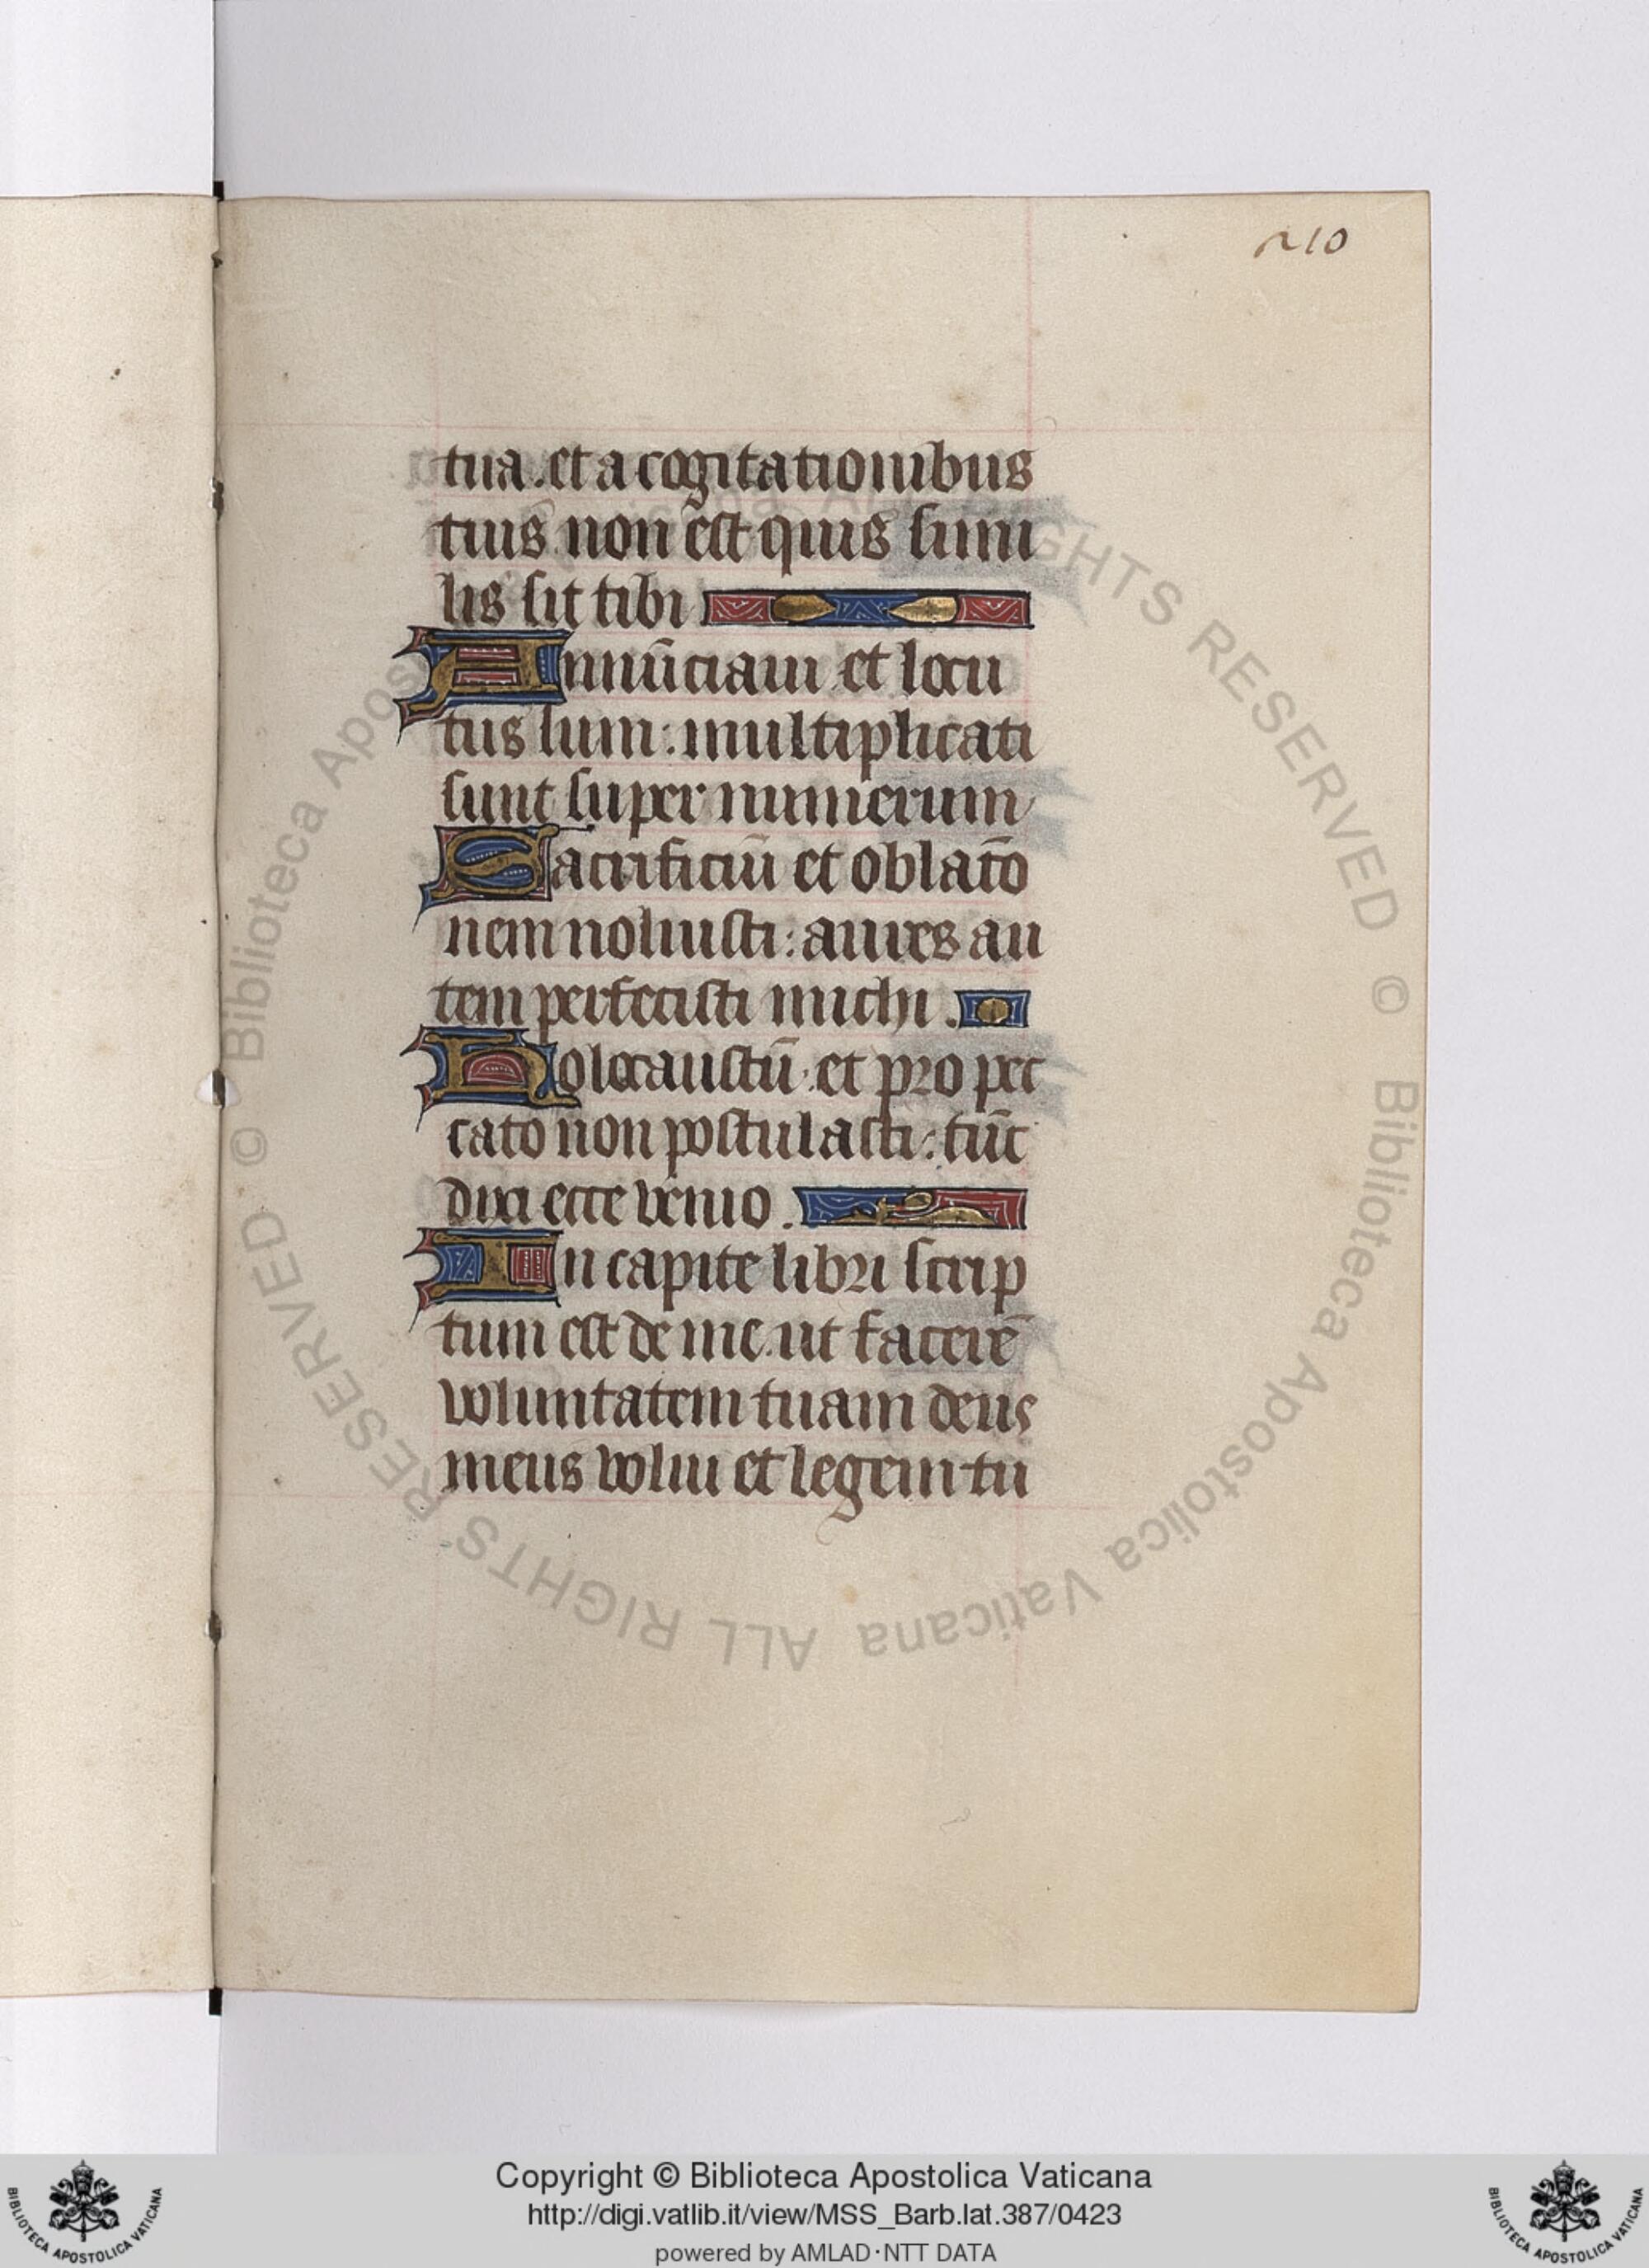 210
tua. et a cogitationibus
tuis non est quis simi
lis sit tibi
Annūciaui et locu
tus sum: multiplicati
sunt super numerum
Sacrificiū et oblatō
nem noluisti: aures au
tem perfecisti michi.
Holocaustū et pro pec
cato non postulasti: tūc
dixi ecce venio.
In capite libri scrip
tum est de me. ut facerē
voluntatem tuam deus
meus volui et legem tu
© Biblioteca Apostolica Vaticana ALL RIGHTS RESERVED © Biblioteca Apostolica Vaticana ALL RIGHTS RESERVED
BIBLIOTECA APOSTOLICA VATICANA
Copyright © Biblioteca Apostolica Vaticana
http://digi.vatlib.it/view/MSS_Barb.lat.387/0423
powered by AMLAD·NTT DATA
BIBLIOTECA APOSTOLICA VATICANA